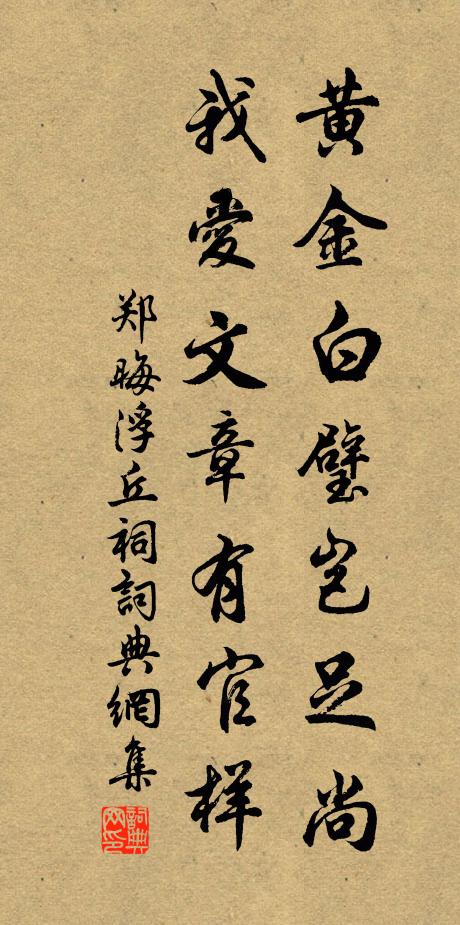 黄金白璧岂足尚
我愛文章有官样
郑晦浮丘祠詞典網集
詞典网印